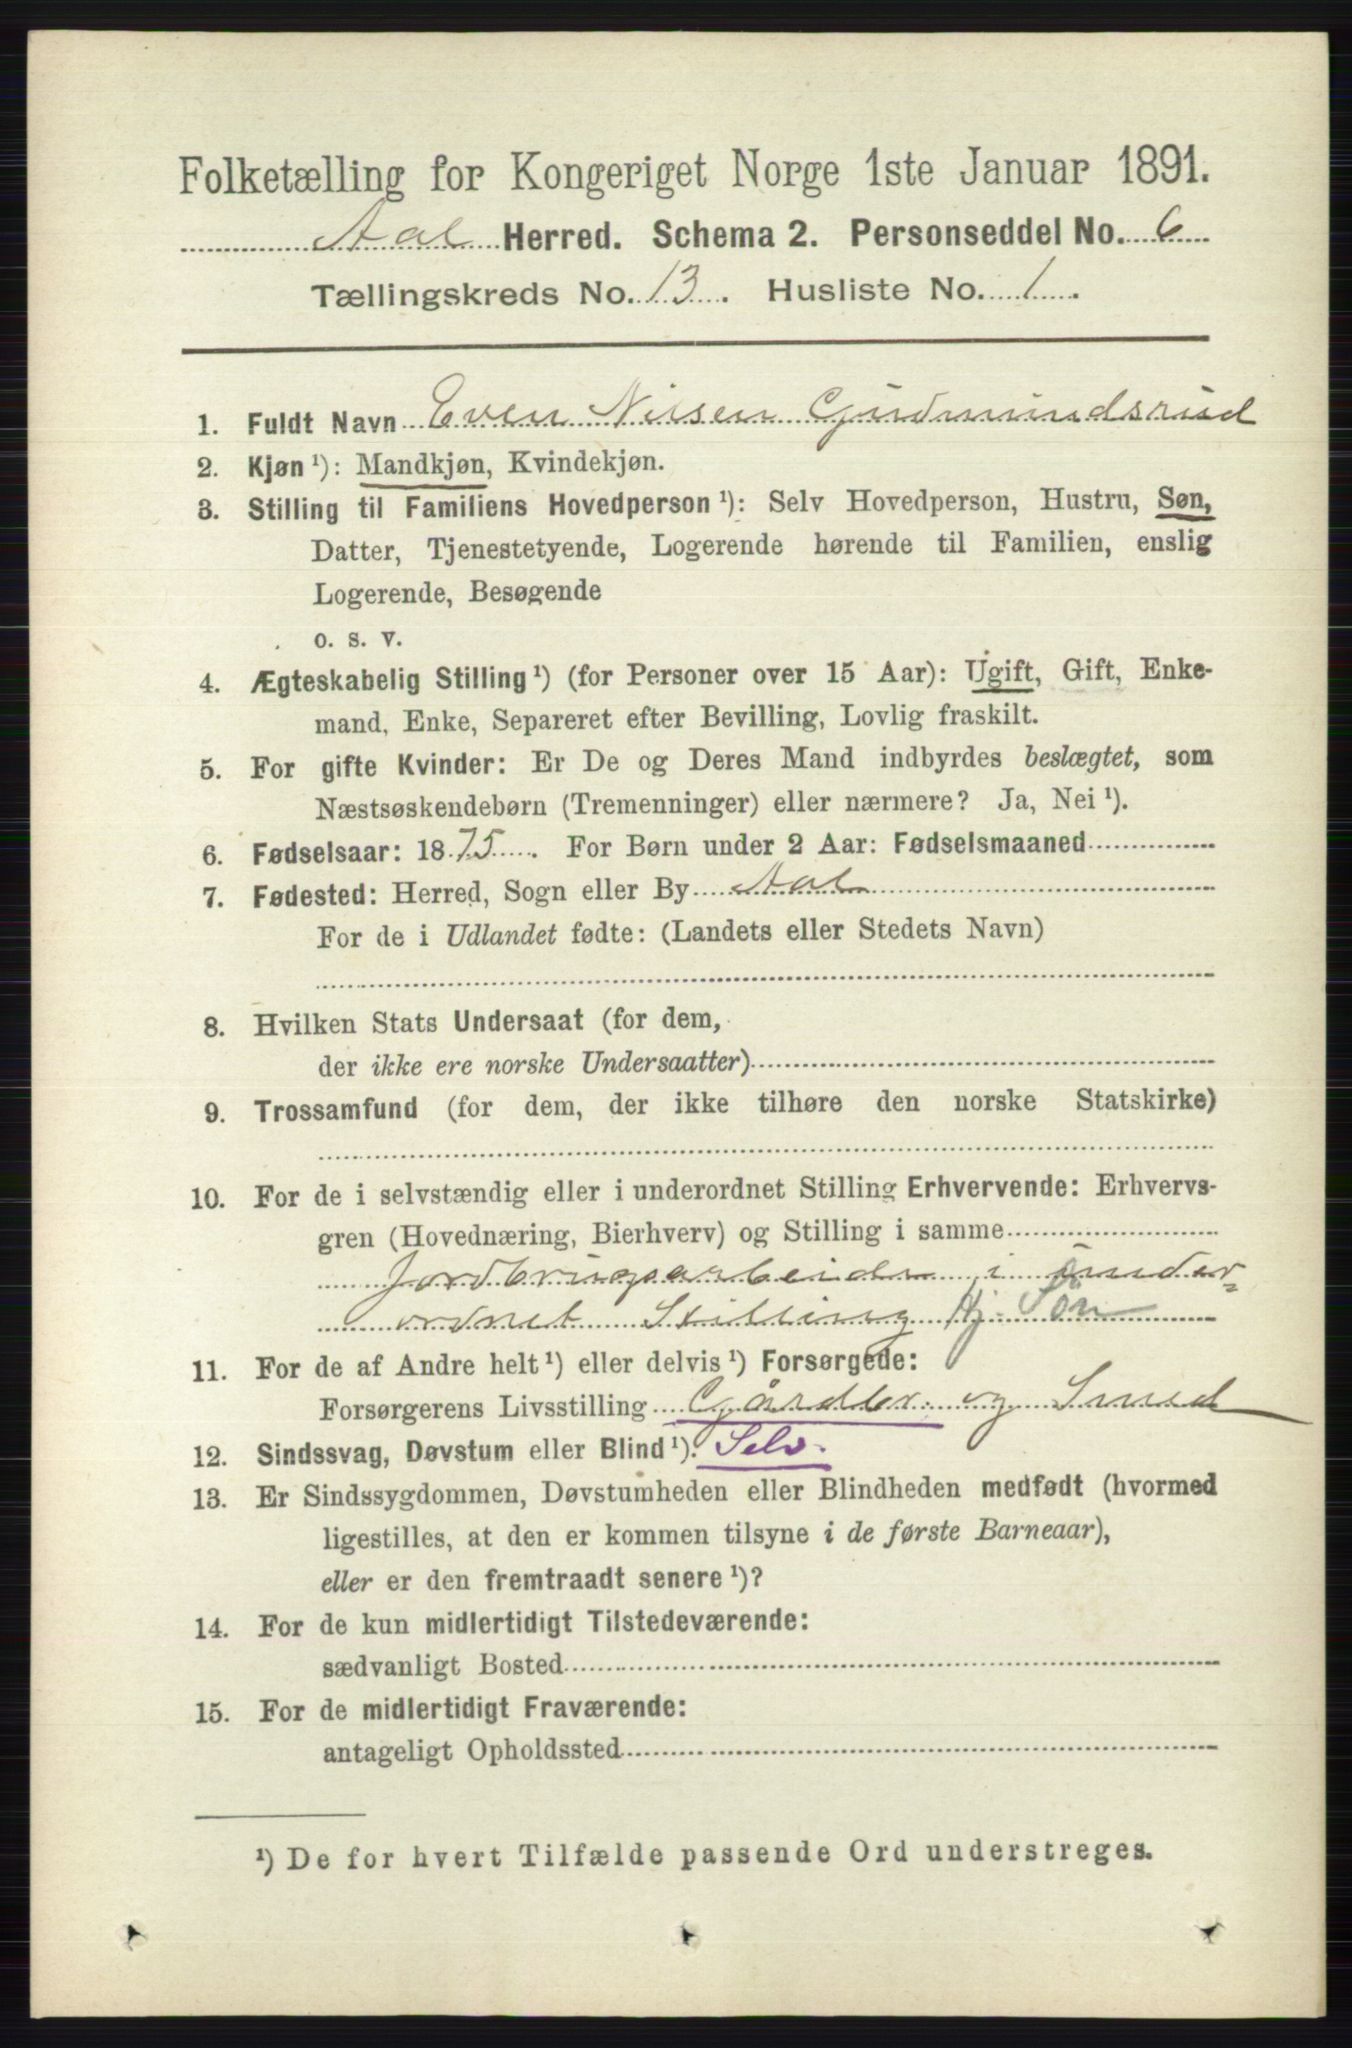 Folketælling for Kongeriget Norge 1ste Januar 1891.
Aal Herred. Schema 2. Personseddel No. 6
Tællingskreds No. 13. Husliste No. 1.
1. Fuldt Navn Even Nilsen Gudmundsrud
2. Kjøn ¹): Mandkjøn, Kvindekjøn.
3. Stilling til Familiens Hovedperson ¹): Selv Hovedperson, Hustru, Søn,
Datter, Tjenestetyende, Logerende hørende til Familien, enslig
Logerende, Besøgende
o. s. v.
4. Ægteskabelig Stilling ¹) (for Personer over 15 Aar): Ugift, Gift, Enke-
mand, Enke, Separeret efter Bevilling, Lovlig fraskilt.
5. For gifte Kvinder: Er De og Deres Mand indbyrdes beslægtet, som
Næstsøskendebørn (Tremenninger) eller nærmere? Ja, Nei ¹).
6. Fødselsaar: 1875. For Børn under 2 Aar: Fødselsmaaned
7. Fødested: Herred, Sogn eller By Aal
For de i Udlandet fødte: (Landets eller Stedets Navn)
8. Hvilken Stats Undersaat (for dem,
der ikke ere norske Undersaatter)
9. Trossamfund (for dem, der ikke tilhøre den norske Statskirke)
10. For de i selvstændig eller i underordnet Stilling Erhvervende: Erhvervs-
gren (Hovednæring, Bierhverv) og Stilling i samme
Jordbrugsarbeide i under-
ordnet Stilling Hj. Søn
11. For de af Andre helt ¹) eller delvis ¹) Forsørgede:
Forsørgerens Livsstilling Gårdbr. og Smed
12. Sindssvag, Døvstum eller Blind ¹). Selv.
13. Er Sindssygdommen, Døvstumheden eller Blindheden medfødt (hvormed
ligestilles, at den er kommen tilsyne i de første Barneaar),
eller er den fremtraadt senere ¹)?
14. For de kun midlertidigt Tilstedeværende:
sædvanligt Bosted
15. For de midlertidigt Fraværende:
antageligt Opholdssted
¹) De for hvert Tilfælde passende Ord understreges.